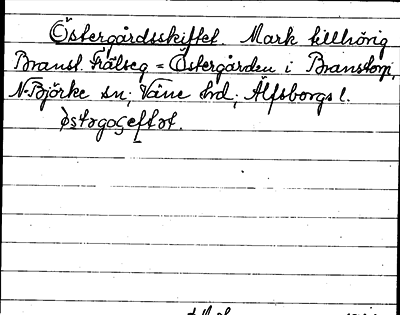 Östergårdsskiftet. Mark tillhörig
Branst. Frälseg = Östergården i Branstorp,
N. Björke sn; Väne hd; Älfsborgs l.